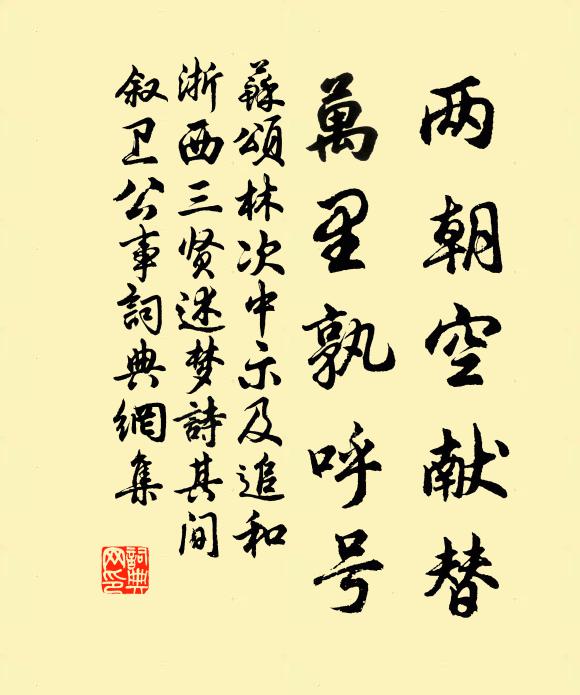 两朝空献替
萬里孰呼号
蘇頌林次中示及追和
浙西三贤述梦詩其间
叙卫公事詞典網集
詞典
网印